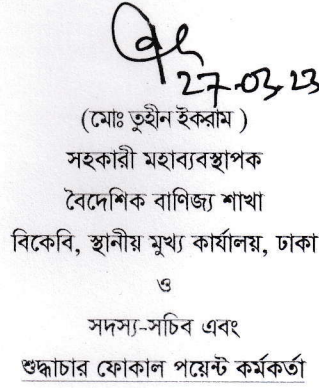 27-03-23
(মোঃ তুহীন ইকরাম )
সহকারী মহাব্যবস্থাপক
বৈদেশিক বাণিজ্য শাখা
বিকেবি, স্থানীয় মুখ্য কার্যালয়, ঢাকা
ও
সদস্য-সচিব এবং
শুদ্ধাচার ফোকাল পয়েন্ট কর্মকর্তা